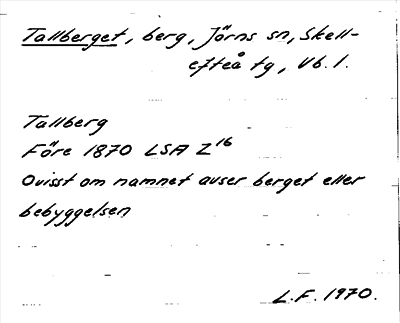 Tallberget, berg, Jörns sn, Skell-
efteå tg, Vb. l.
Tallberg
Före 1870 LSA Z16
Ovisst om namnet avser berget eller
bebyggelsen
L.F. 1970.